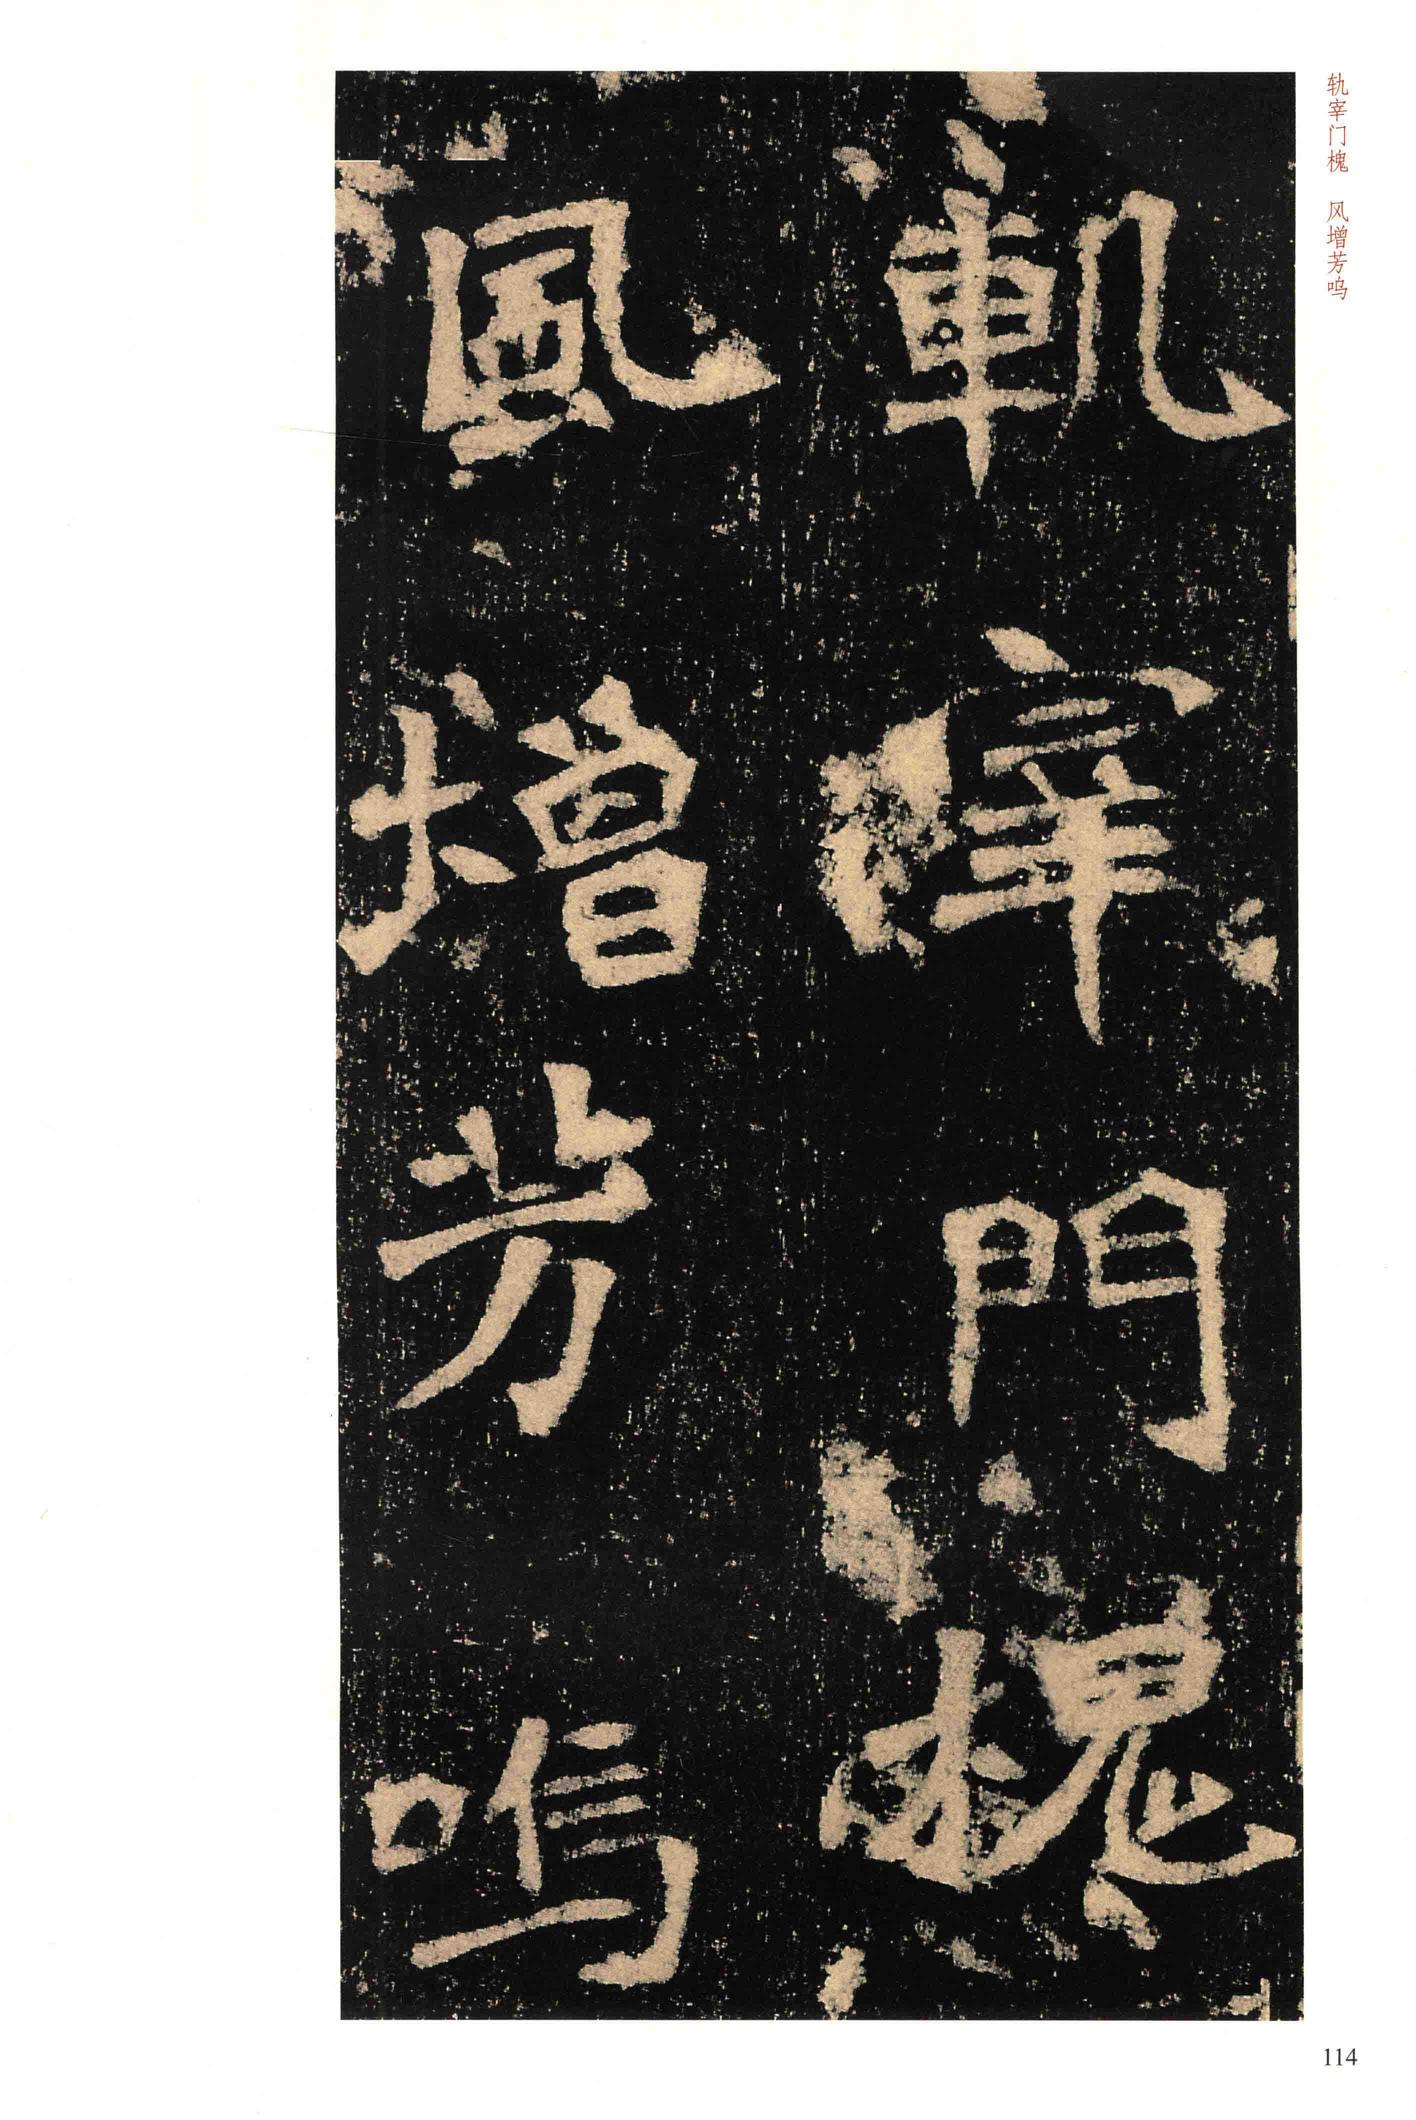 轨宰门槐　风增芳呜
軌宰門槐
風增芳嗚
114